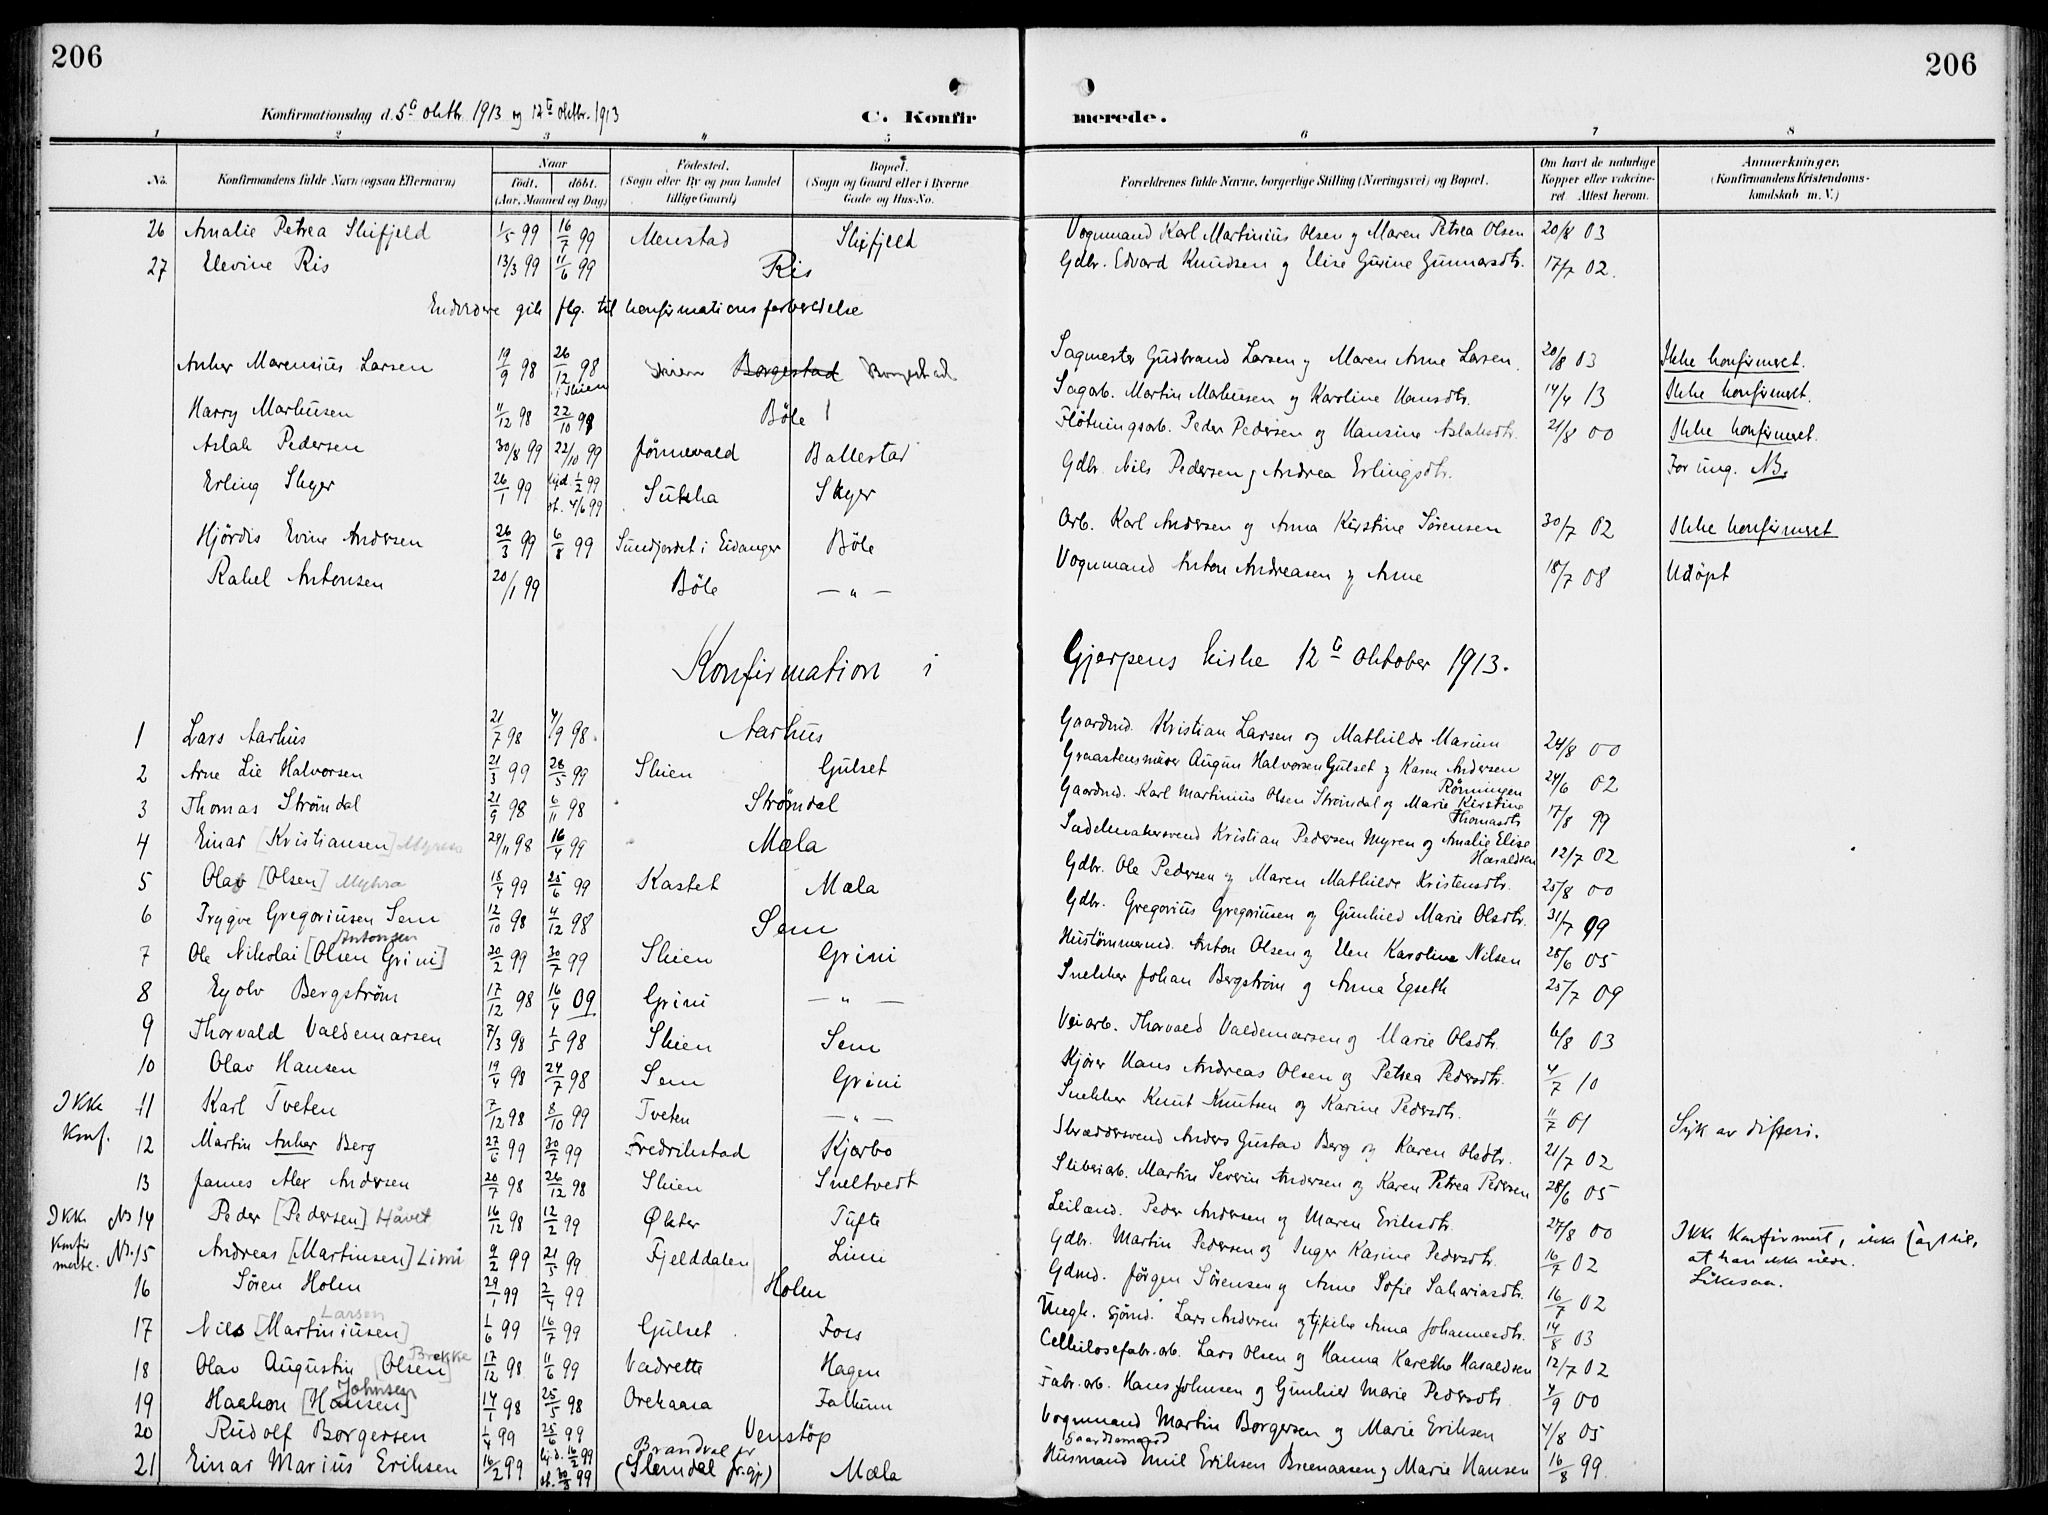 206
206
Konfirmationsdag d. 5te oktbr. 1913 og 12te oktbr. 1913
C. Konfir merede.
1 2 3 4 5 6 7 8
No. Konfirmandens fulde Navn (ogsaa Efternavn) Naar født. døbt. (Aar, Maaned og Dag) Fødested. (Sogn eller By og paa Landet tillige Gaard) Bopæl. (Sogn og Gaard eller i Byerne Gade og Hus-No. Forældrenes fulde Navne, borgerlige Stilling (Næringsvei) og Bopæl. Om havt de naturlige Kopper eller vakcineret Attest herom. Anmærkninger, (Konfirmandens Kristendomskundskab m. V.)
26 Amalie Petrea Skifjeld 1/5 99 16/7 99 Menstad Skifjeld Vognmand Karl Martinius Olsen og Maren Petrea Olsen 20/8 03
27 Elevine Ris 13/3 99 11/6 99 Ris Gdbr. Edvard Knudsen og Elise Gurine Gunnarsdtr. 17/7 02.
Endvidere gik flg. til konfirmationsforberedelse
Anker Marensius Larsen 19/9 98 26/12 98 i Skien Skien Borgestad Borgestad Sagmester Gudbrand Larsen og Maren Anne Larsen 20/8 03 Ikke konfirmeret.
Harry Markusen 11/12 98 22/10 98 Böle Sagarb. Martin Markusen og Karoline Hansdtr. 14/4 13 Ikke konfirmeret.
Aslak Pedersen 30/8 99 22/10 99 Jönnevald Ballestad Flötningsarb. Peder Pedersen og Hansine Aslaksdtr. 21/8 00 Ikke konfirmeret.
Erling Skyer 26/1 99 hjd. 1/2 99 st. 4/6 99 Skyer Gdbr. Nils Pedersen og Andrea Erlingsdtr. For ung. NB.
Hjördis Evine Andersen 26/3 99 6/8 99 Sundjordet i Eidanger Böle Arb. Karl Andersen og Anna Kirstine Sörensen 30/7 02 Ikke konfirmeret
Rakel Antonsen 20/1 99 Böle — " — Vognmand Anton Andreasen og Anne 18/7 08 Udöpt
Konfirmation i Gjerpens kirke 12te Oktober 1913.
1 Lars Aarhus 21/7 98 4/9 98 Aarhus Gaardmd. Kristian Larsen og Mathilde Marium 24/8 00
2 Arne Lie Halvorsen 21/3 99 28/5 99 Skien Gulset Graastensmurer Augun Halvorsen Gulset og Karen Andersen Rönningen 24/6 02
3 Thomas Strömdal 21/9 98 6/11 98 Strömdal Gaardmd. Karl Martinius Olsen Strömdal og Marie Kirstine Thomasdtr. 17/8 99
4 Einar [Kristiansen] Myren 29/11 98 16/4 99 Mæla Sadelmakersvend Kristian Pedersen Myren og Amalie Elise Haraldsen 12/7 02
5 Olav [Olsen] Myhra 18/4 99 25/6 99 Kastet Mæla Gdbr. Ole Pedersen og Maren Mathilde Kristensdtr. 25/8 00
6 Trygve Gregoriusen Sem 12/10 98 4/12 98 Sem Gdbr. Gregorius Gregoriusen og Gunhild Marie Olsdtr. 31/7 99
7 Ole Nikolai [Olsen Grini] Antonsen 20/2 99 30/7 99 Skien Grini Hustömmermd. Anton Olsen og Elen Karoline Nilsen 28/6 05
8 Eyolv Bergström 17/12 98 16/4 09 Grini — " — Snekker Johan Bergström og Anna Egseth 25/7 09
9 Thorvald Valdemarsen 7/3 98 1/5 98 Skien Sem Veiarb. Thorvald Valdemarsen og Marie Olsdtr. 6/8 03
10 Olav Hansen 19/4 98 24/7 98 Sem Grini Kjörer Hans Andreas Olsen og Petrea Pedersdtr. 4/7 10
Ikke Konf. 11 Karl Tveten 7/12 98 8/10 99 Tveten — " — Snekker Knut Knutsen og Karine Pedersdtr. 11/7 01 Syk av difteri.
12 Martin Anker Berg 27/6 99 30/7 99 Fredrikstad Kjærbo Skræddersvend Anders Gustav Berg og Karen Olsdtr. 21/7 02
13 James Alex Andersen 20/7 98 26/12 98 Skien Sneltvedt Sliberiarb. Martin Severin Andersen og Karen Petrea Pedersen 28/6 05
Ikke Konfirmerte. No 14 Peder [Pedersen] Håvet 16/12 98 12/2 99 Økter Tufte Leiland. Peder Andersen og Maren Eriksdtr. 27/8 00 Ikke Konfirmert,
No. 15 Andreas [Martinsen] Limi 9/2 99 21/5 99 Fjelddalen Limi Gdbr. Martin Pedersen og Inger Karine Pedersdtr. 16/7 02 Likesaa.
16 Sören Holen 29/1 99 2/4 99 Holen Gdmd. Jörgen Sörensen og Anne Sofie Sakariasdtr. 16/7 02
17 Nils [Martiniusen] Larsen 1/6 99 16/7 99 Gulset Fors Ungk. Lars Andersen og pike Anna Johannesdtr. 14/8 03
18 Olav Augustin [Olsen] Brekke 17/12 98 11/6 99 Vadrette Hagen Cellulosefabr.arb. Lars Olsen og Hanna Karethe Haraldsen 12/7 02
19 Haakon [Hansen] Johnsen 14/1 98 25/5 98 Orekaasa Falkum Fabr.arb. Hans Johnsen og Gunhild Marie Pedersdtr. 4/9 00
20 Rudolf Borgersen 1/4 99 25/6 99 Venstöp Vognmand Martin Borgersen og Marie Eriksen 4/8 05
21 Einar Marius Eriksen 16/2 99 hj.d. 16/2 99 st. 20/8 99 Brandval (Slemdal pr.gj.) Mæla Husmand Emil Eriksen Breenaasen og Marie Hansen 16/8 99.